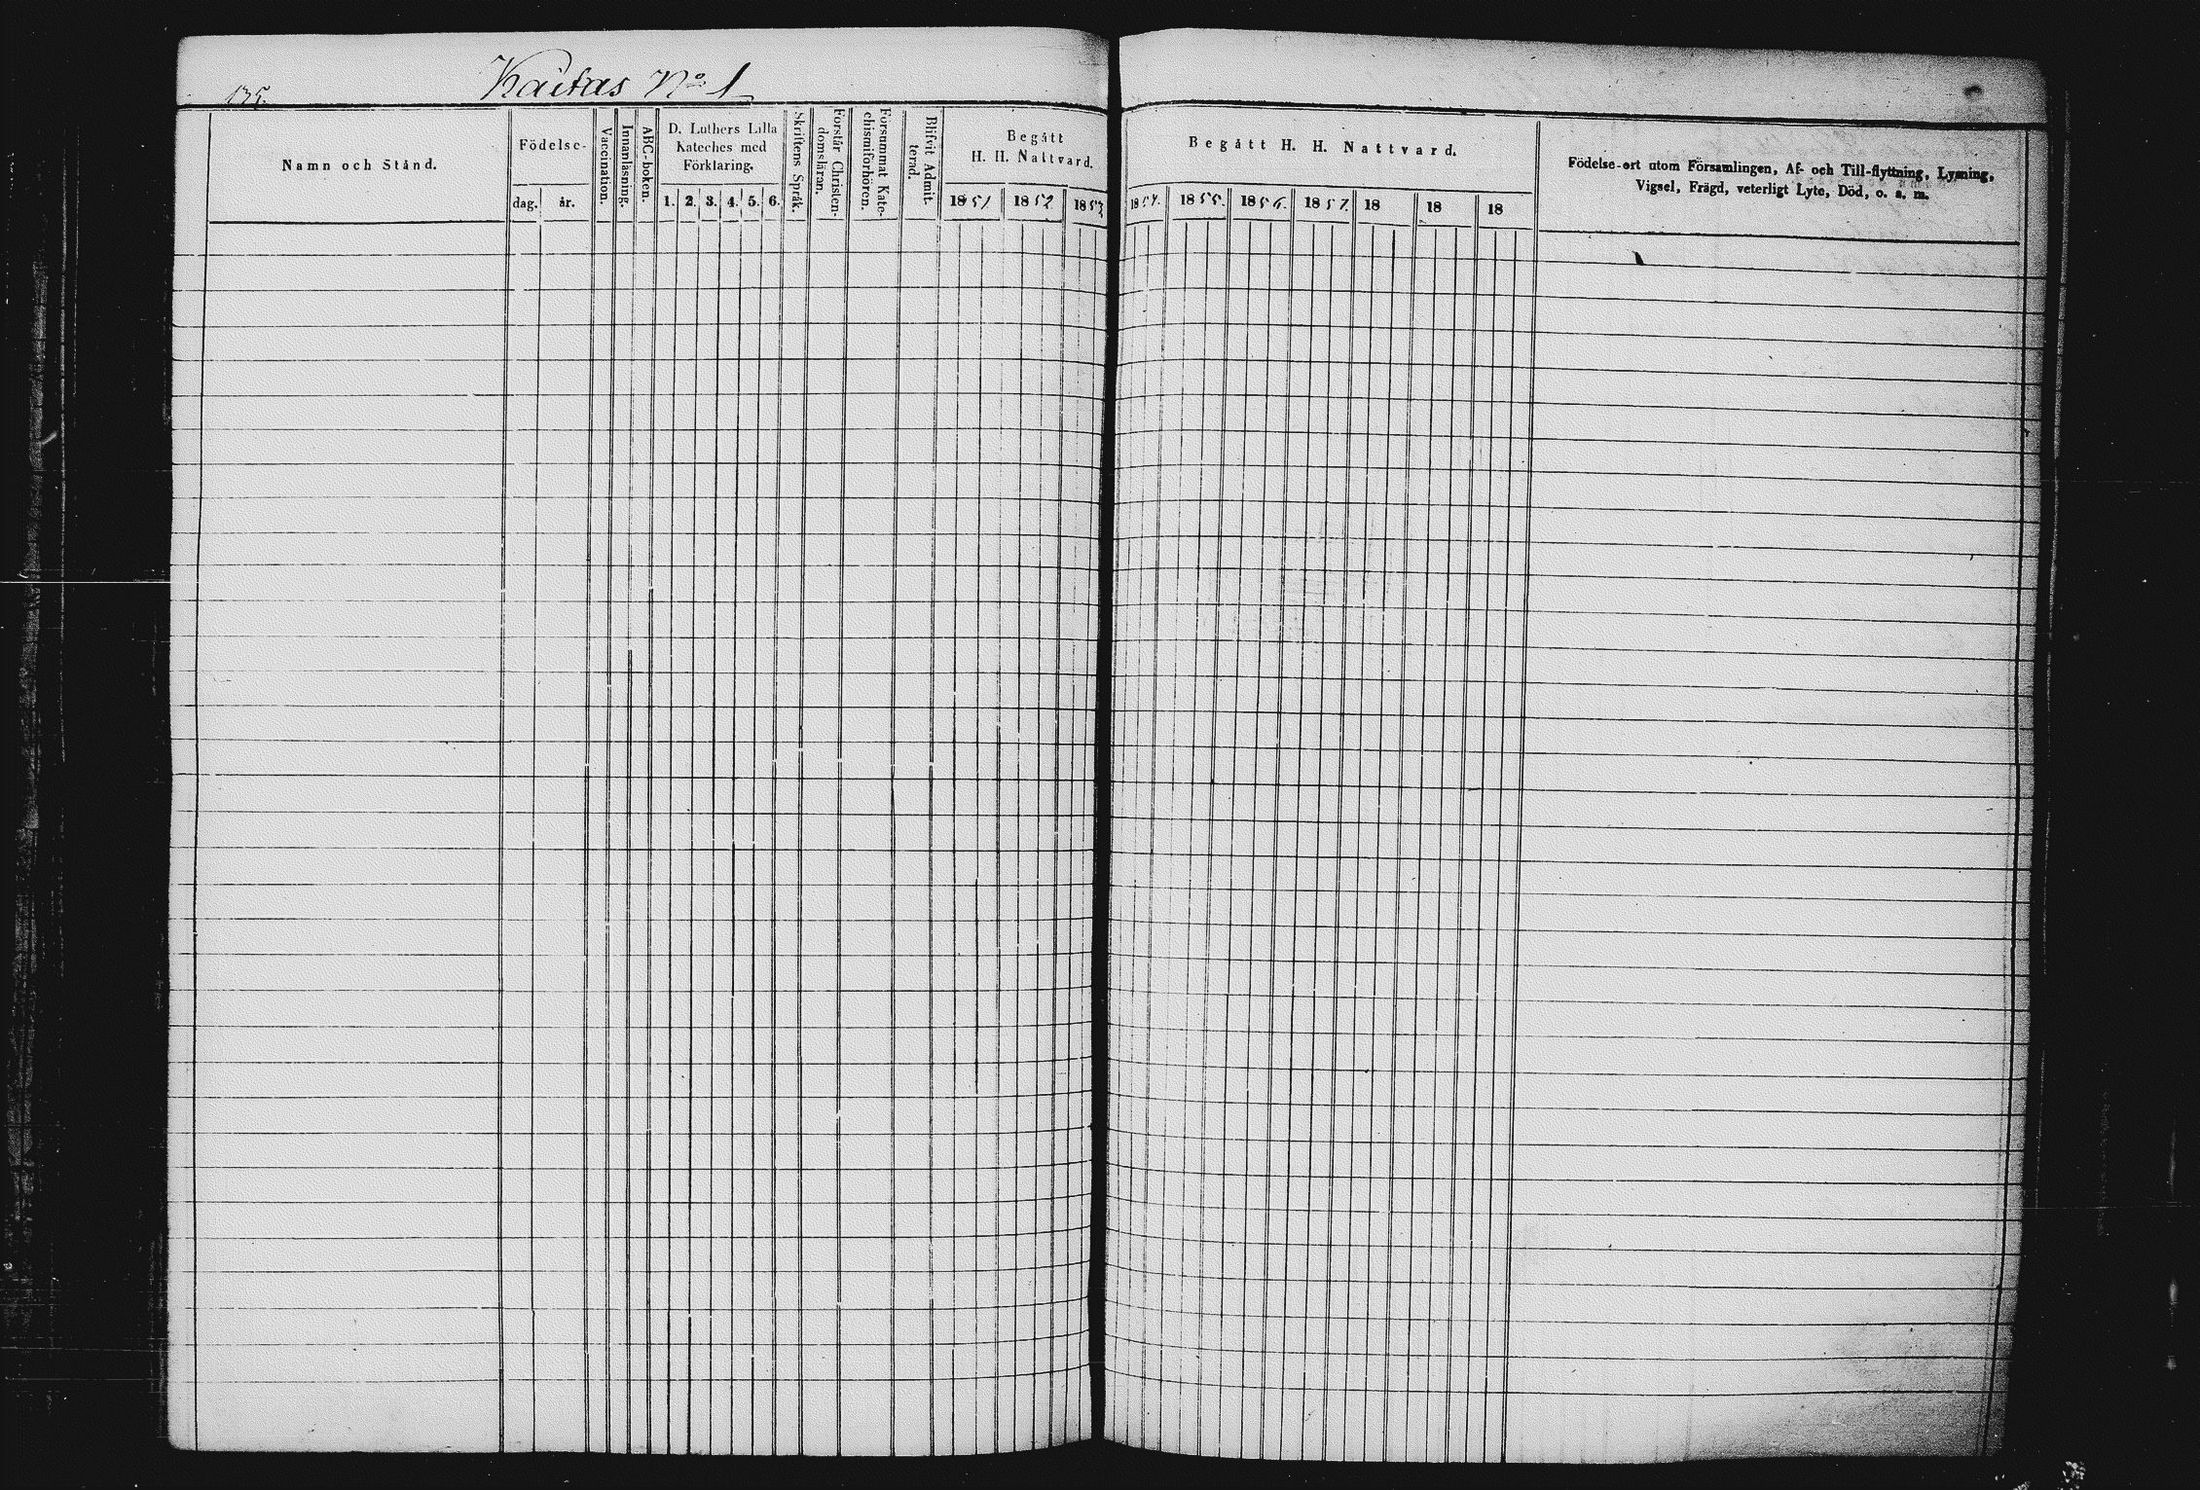 135.
Kaitas No 1
Namn och Stånd.
Födelse-
dag.
år.
Vaccination.
Innanläsning.
ABC-boken.
D. Luthers Lilla
Kateches med
Förklaring.
1. 2. 3. 4. 5. 6.
Skriftens Språk.
Förstår Christen-
domsläran.
Försummat Kate-
chismiförhören.
Blifvit Admit-
terad.
Begått
H. H. Nattvard.
1851 1852 1853
Begått H. H. Nattvard.
1854. 1855. 1856. 1857. 18 18 18
Födelse-ort utom Församlingen, Af- och Till-flyttning, Lysning,
Vigsel, Frägd, veterligt Lyte, Död, o. s. m.